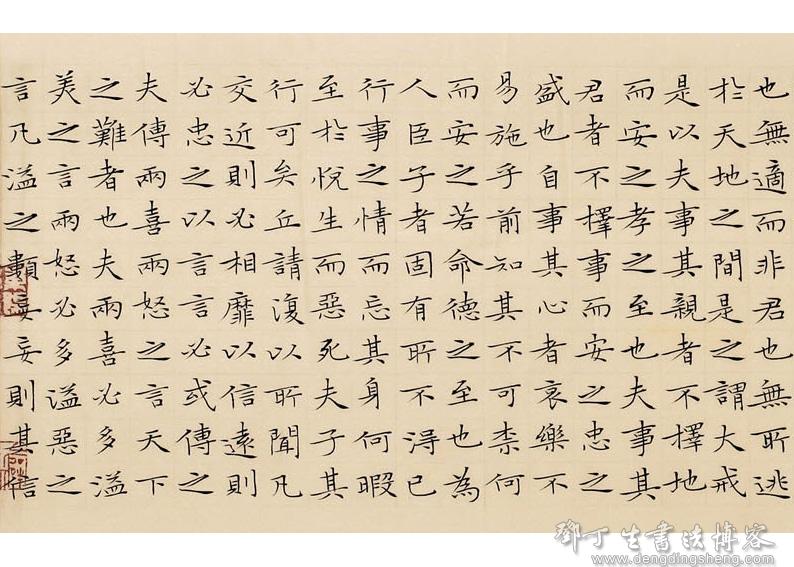 也無適而非君也無所逃
於天地之間是之謂大戒
是以夫事其親者不擇地
而安之孝之至也夫事其
君者不擇事而安之忠之
盛也自事其心者哀樂不
易施乎前知其不可柰何
而安之若命德之至也為
人臣子者固有所不得已
行事之情而忘其身何暇
至於悅生而惡死夫子其
行可矣丘請復以所聞凡
交近則必相靡以信遠則
必忠之以言言必或傳之
夫傳兩喜兩怒之言天下
之難者也夫兩喜必多溢
美之言兩怒必多溢惡之
言凡溢之類妄妄則其信
鄧丁生書法博客
www.dengdingsheng.com